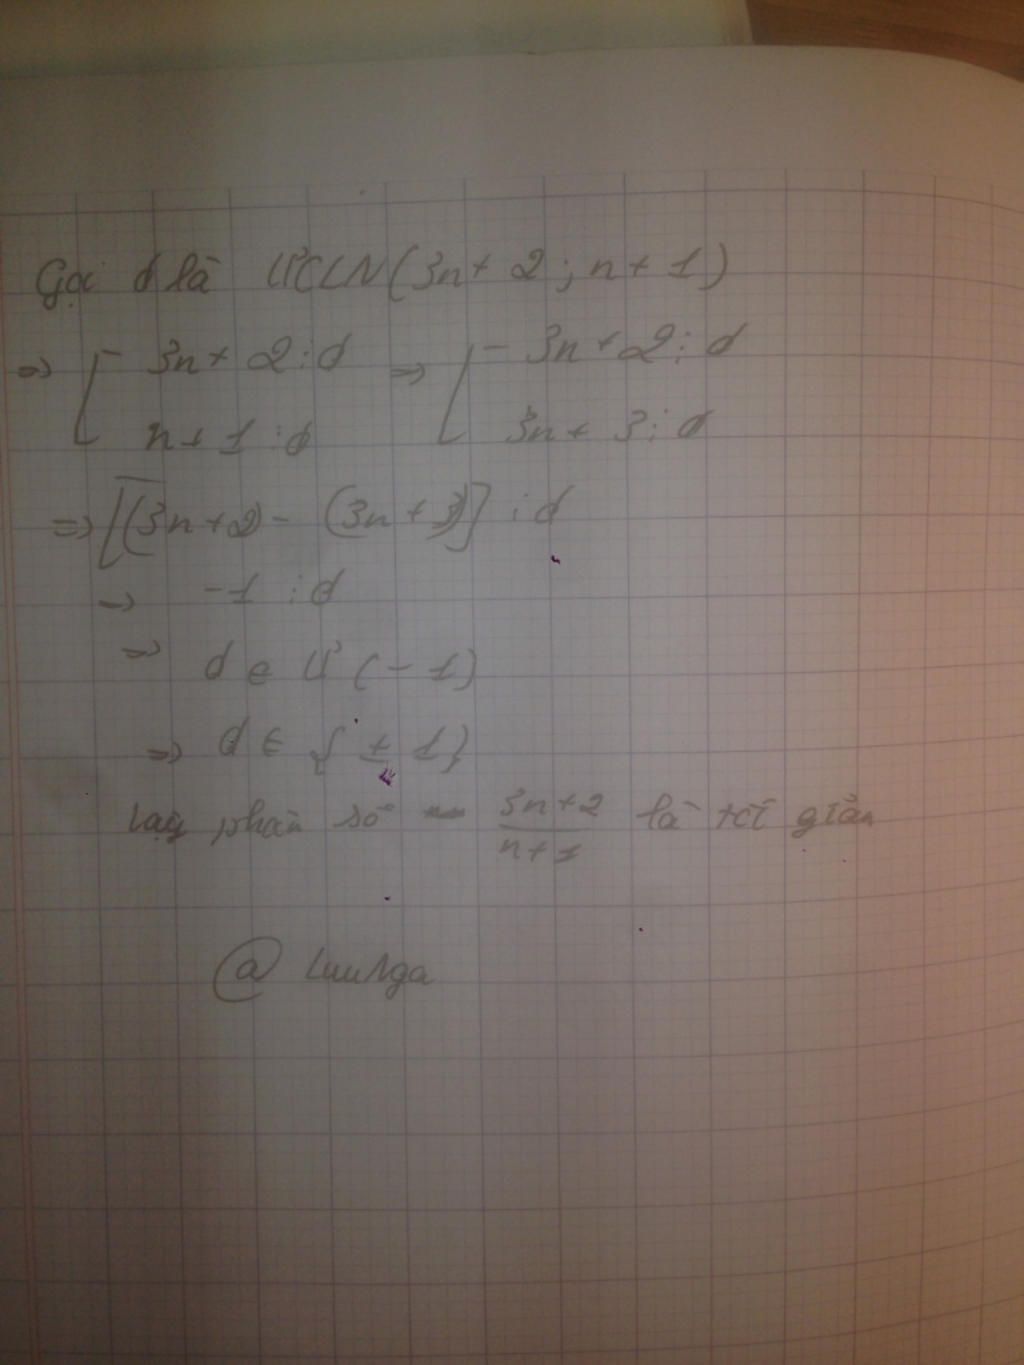 Gọi d là ƯCLN(3n+2; n+1)
=> [ 3n+2 ⋮ d => [ 3n+2 ⋮ d
n+1 ⋮ d 3n+3 ⋮ d
=> [(3n+2) - (3n+3)] ⋮ d
=> -1 ⋮ d
=> d ∈ Ư(-1)
=> d ∈ {±1}
phân số \frac{3n+2}{n+1} là tối giản
@ LưuNga